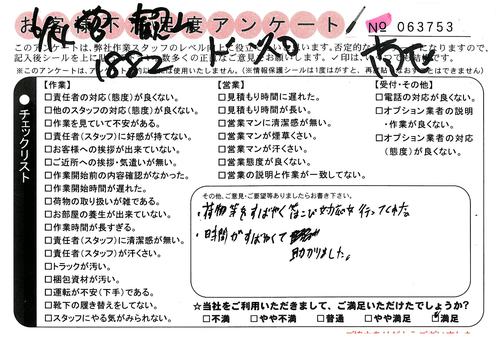 お客様不満足度アンケート
№ 063753
1882
このアンケートは、弊社作業スタッフのレベル向上に役立
記入後シールを上に貼
【作業】
□責任者の対応(態度)が良くない。
□他のスタッフの対応(態度)が良くない。
□作業を見ていて不安がある。
□責任者(スタッフ)に好感が持てない。
□お客様への挨拶が出来ていない。
□ご近所への挨拶・気遣いが無い。
□作業開始前の内容確認がなかった。
□作業開始時間が遅れた。
□荷物の取り扱いが雑である。
□お部屋の養生が出来ていない。
□作業時間が長すぎる。
□責任者(スタッフ)に清潔感が無い。
□責任者(スタッフ)が汗くさい。
□トラックが汚い。
□梱包資材が汚い。
□運転が不安(下手)である。
□靴下の履き替えをしてない。
□スタッフにやる気がみられない。
【営業】
□見積もり時間に遅れた。
□見積もり時間が長い。
□営業マンに清潔感が無い。
□営業マンが煙草くさい。
□営業マンが汗くさい。
□営業態度が良くない。
□営業の説明と作業が一致してない。
【受付・その他】
□電話の対応が良くない。
□オプション業者の説明
・作業が良くない。
□オプション業者の対応
(態度)が良くない。
●チェックリスト
その他、ご意見・ご要望等ありましたらお書き下さい。
・荷物等をすばやくはこび対応を行ってくれた。
・時間がすばやくて
助かりました。
☆当社をご利用いただきまして、ご満足いただけたでしょうか?
□不満 □やや不満 □普通 □やや満足 ☑満足